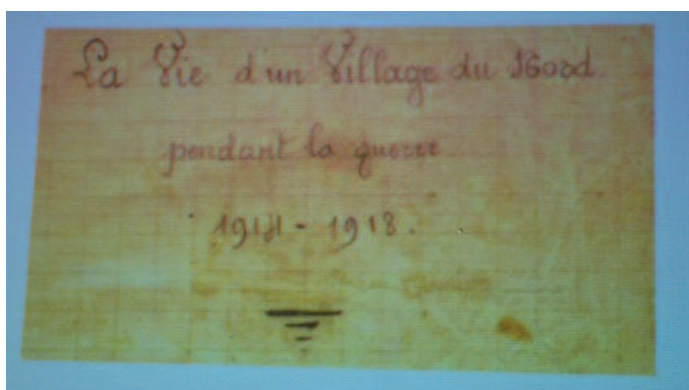 La Vie d'un Village du Nord
pendant la guerre
1914 - 1918.